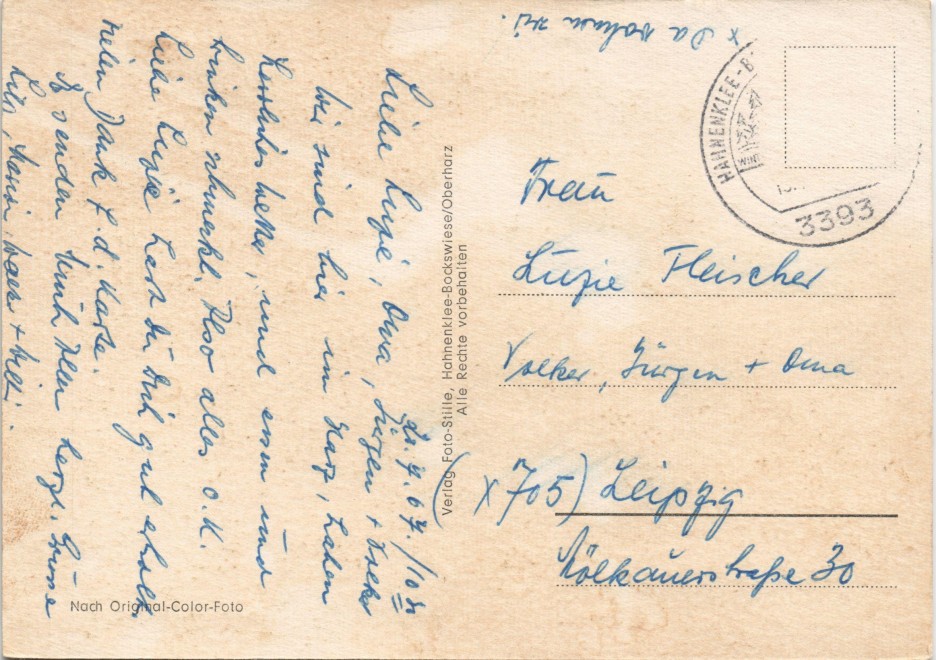 x Da wohnen wir.
HAHNENKLEE-B
3393
23.7.67./10 h
Liebe Luzie, Oma, Jürgen + Volker
Wir sind hier im Harz, haben
herrliches Wetter, und essen und
trinken schmeckt. Also alles o.K.
Liebe Luzie hast du Dich gut erholt.
vielen Dank f. d. Karte.
Es senden Euch allen herzl. Grüsse
Verlag Foto-Stille, Hahnenklee-Bockswiese/Oberharz
Alle Rechte vorbehalten
Nach Original-Color-Foto
Frau
Luzie Fleischer
Volker, Jürgen + Oma
(x 705) Leipzig
Kölkauerstraße 30